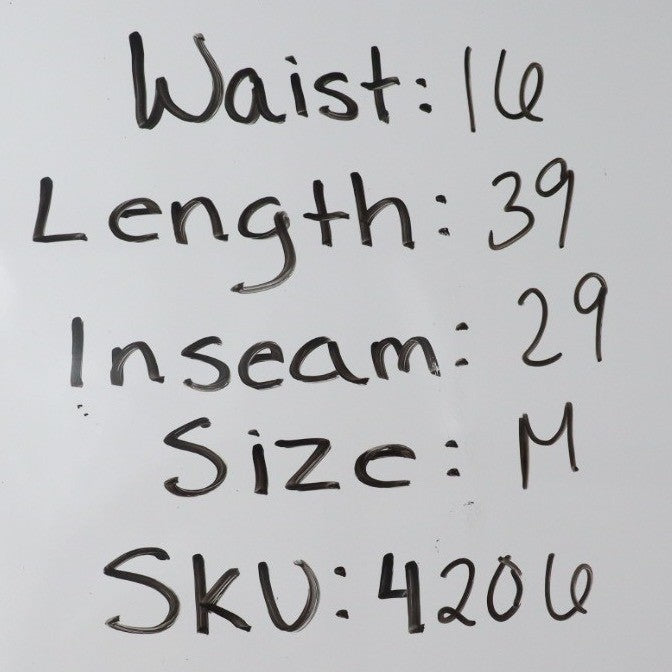 Waist: 16
Length: 39
Inseam: 29
Size: M
SKU: 4206